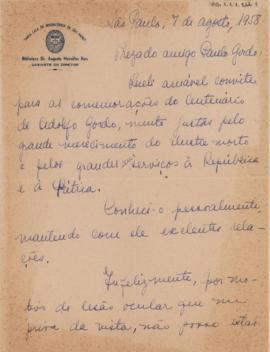 SANTA CASA DE MISERICORDIA DE SÃO PAULO
Biblioteca Dr. Augusto Meirelles Reis
GABINETE DO DIRETOR
São Paulo, 7 de agosto, 1958
Prezado amigo Paulo Gordo,
amável convite
para as comemorações do Centenário
de Adolfo Gordo, muito justas pelo
grande merecimento do ilustre morto
e pelos grandes seus serviços à República
e à Pátria.
Conheci-o pessoalmente,
mantendo com ele excelentes rela-
ções.
Infelizmente, por mo-
tivos de lesão ocular que me
priva da vista, não posso estar